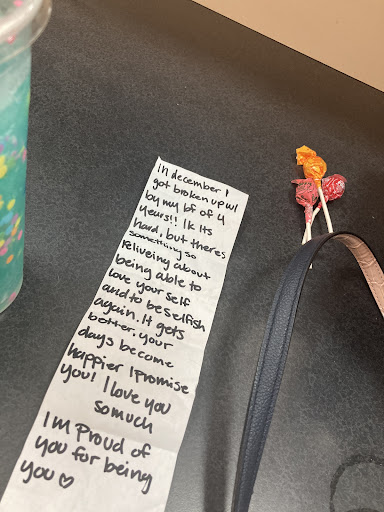 In december I
got broken up w/
by my bf of 4
years!! Ik Its
hard, but theres
something so
releiveing about
being able to
love your self
and to be selfish
again. It gets
better. your
days become
happier I Promise
you! I love you
so much
Im Proud of
you for being
you ♡